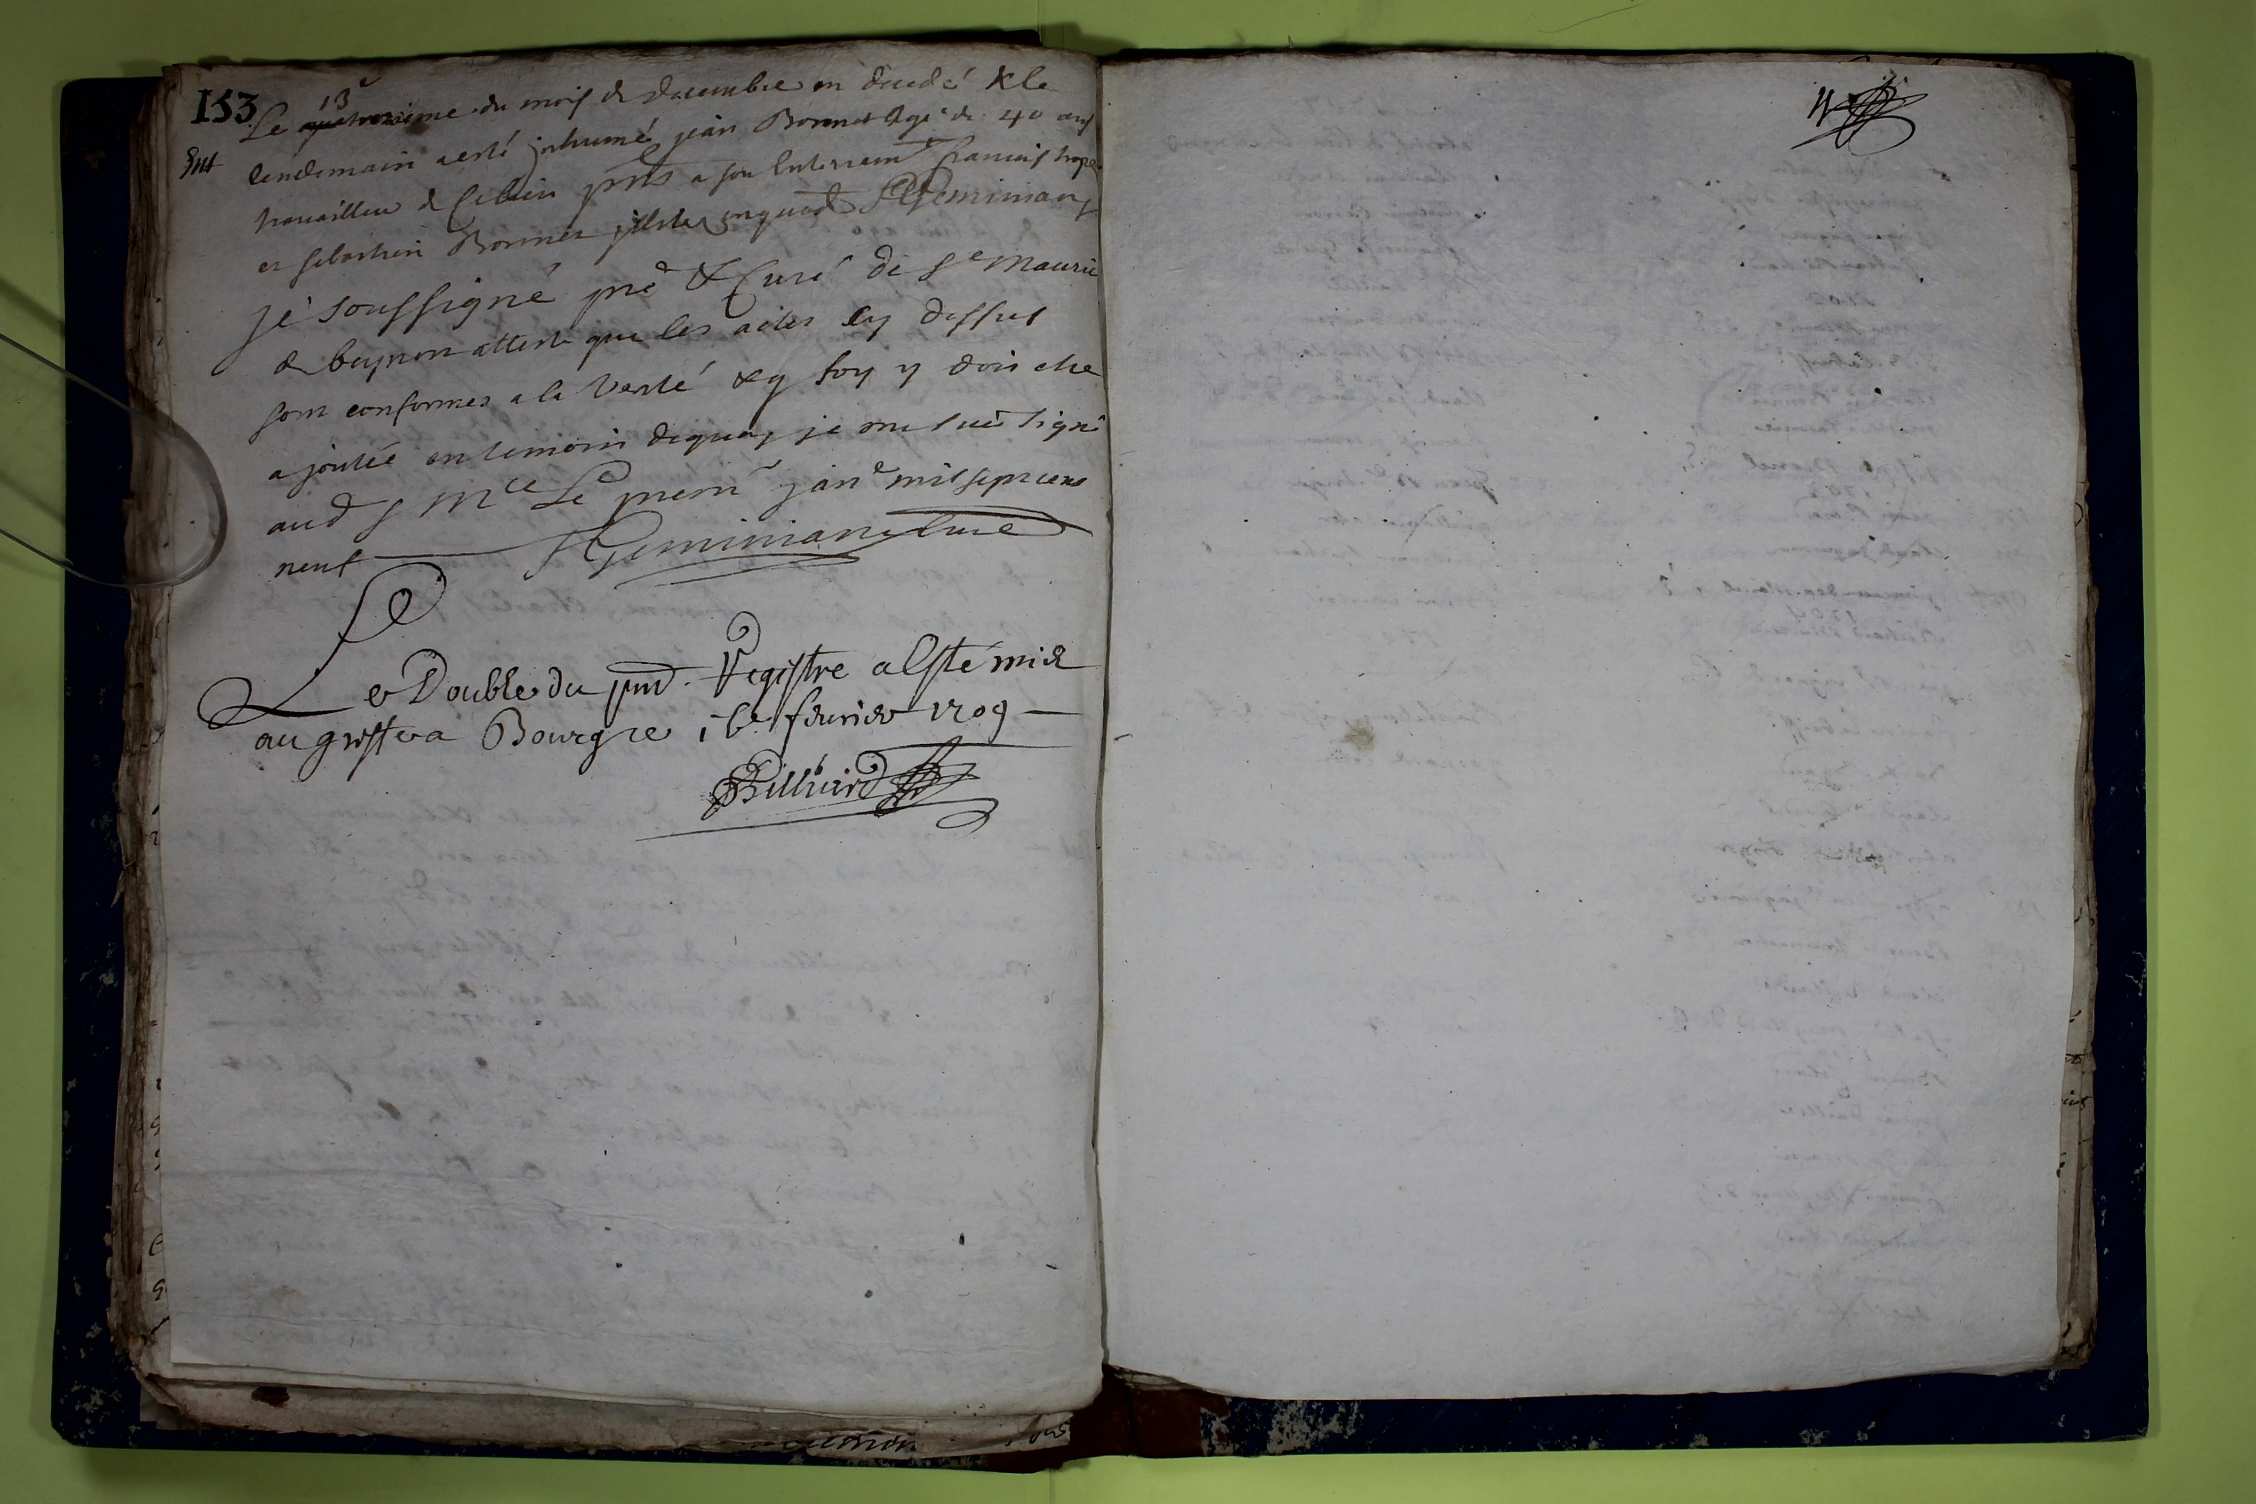 153
Le 13e quatrozieme du mois de decembre en decedé & le
Ent
lendemain a esté inhumé jean Bonnet Agé de 40 ans
travailleur de prnts a son Enterremt francois
et sebastien Bonnet jllitere enquis StGeminian
Je soussigné pre & Curé de St Maurice
de beynost atteste que les actes cy dessus
sont conformes a la verité & q foy y doit etre
ajoutée en temoin dequoy je me suis signé
aud S Mce Le premr janr mil sept cens
neuf StGeminian Curé
Le Double du pnt Registre a Esté mis
au greffe a Bourg ce 1 le fevrier 1709
Billiard